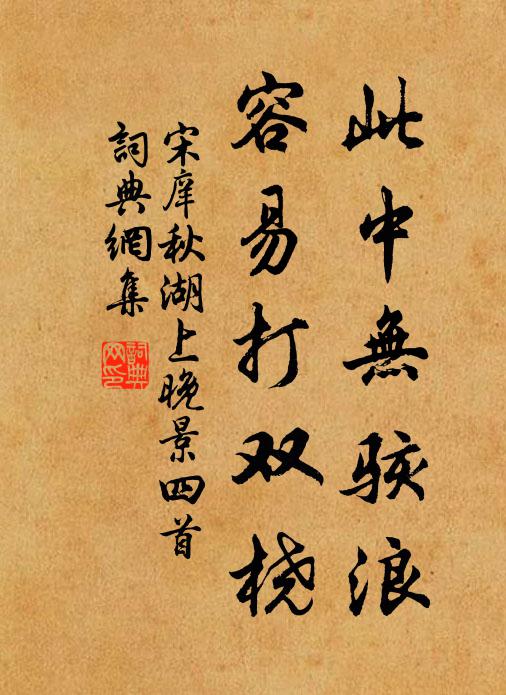 此中無駭浪
容易打双桡
宋庠秋湖上晚景四首
詞典網集
詞典
网印